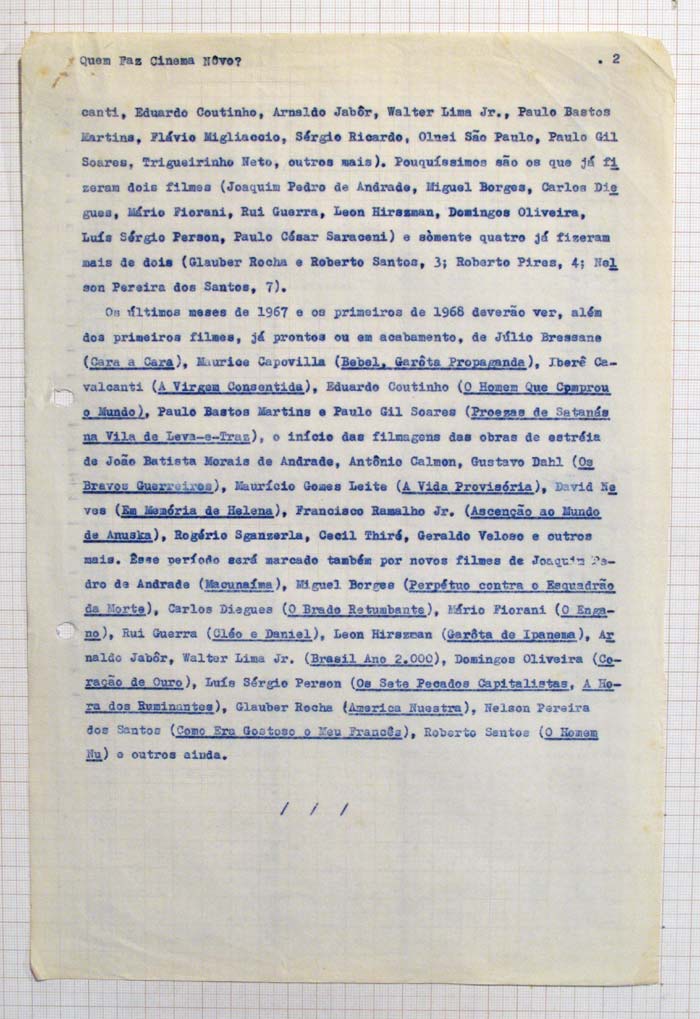 Quem Faz Cinema Nôvo?
. 2
canti, Eduardo Coutinho, Arnaldo Jabôr, Walter Lima Jr., Paulo Bastos
Martins, Flávio Migliaccio, Sérgio Ricardo, Olnei São Paulo, Paulo Gil
Soares, Trigueirinho Neto, outros mais). Pouquíssimos são os que já fi
zeram dois filmes (Joaquim Pedro de Andrade, Miguel Borges, Carlos Die
gues, Mário Fiorani, Rui Guerra, Leon Hirszman, Domingos Oliveira,
Luís Sérgio Person, Paulo César Saraceni) e sòmente quatro já fizeram
mais de dois (Glauber Rocha e Roberto Santos, 3; Roberto Pires, 4; Nel
son Pereira dos Santos, 7).
Os últimos meses de 1967 e os primeiros de 1968 deverão ver, além
dos primeiros filmes, já prontos ou em acabamento, de Júlio Bressane
(Cara a Cara), Maurice Capovilla (Bebel, Garôta Propaganda), Iberê Ca-
valcanti (A Virgem Consentida), Eduardo Coutinho (O Homem Que Comprou
o Mundo), Paulo Bastos Martins e Paulo Gil Soares (Proezas de Satanás
na Vila de Leva-e-Traz), o início das filmagens das obras de estréia
de João Batista Morais de Andrade, Antônio Calmon, Gustavo Dahl (Os
Bravos Guerreiros), Maurício Gomes Leite (A Vida Provisória), David Ne
ves (Em Memória de Helena), Francisco Ramalho Jr. (Ascenção ao Mundo
de Anuska), Rogério Sganzerla, Cecil Thiré, Geraldo Veloso e outros
mais. Êsse período será marcado também por novos filmes de Joaquim Pe-
dro de Andrade (Macunaíma), Miguel Borges (Perpétuo contra o Esquadrão
da Morte), Carlos Diegues (O Brado Retumbante), Mário Fiorani (O Enga-
no), Rui Guerra (Cléo e Daniel), Leon Hirszman (Garôta de Ipanema), Ar
naldo Jabôr, Walter Lima Jr. (Brasil Ano 2.000), Domingos Oliveira (Co-
ração de Ouro), Luís Sérgio Person (Os Sete Pecados Capitalistas, A Ho-
ra dos Ruminantes), Glauber Rocha (America Nuestra), Nelson Pereira
dos Santos (Como Era Gostoso o Meu Francês), Roberto Santos (O Homem
Nu) e outros ainda.
/ / /